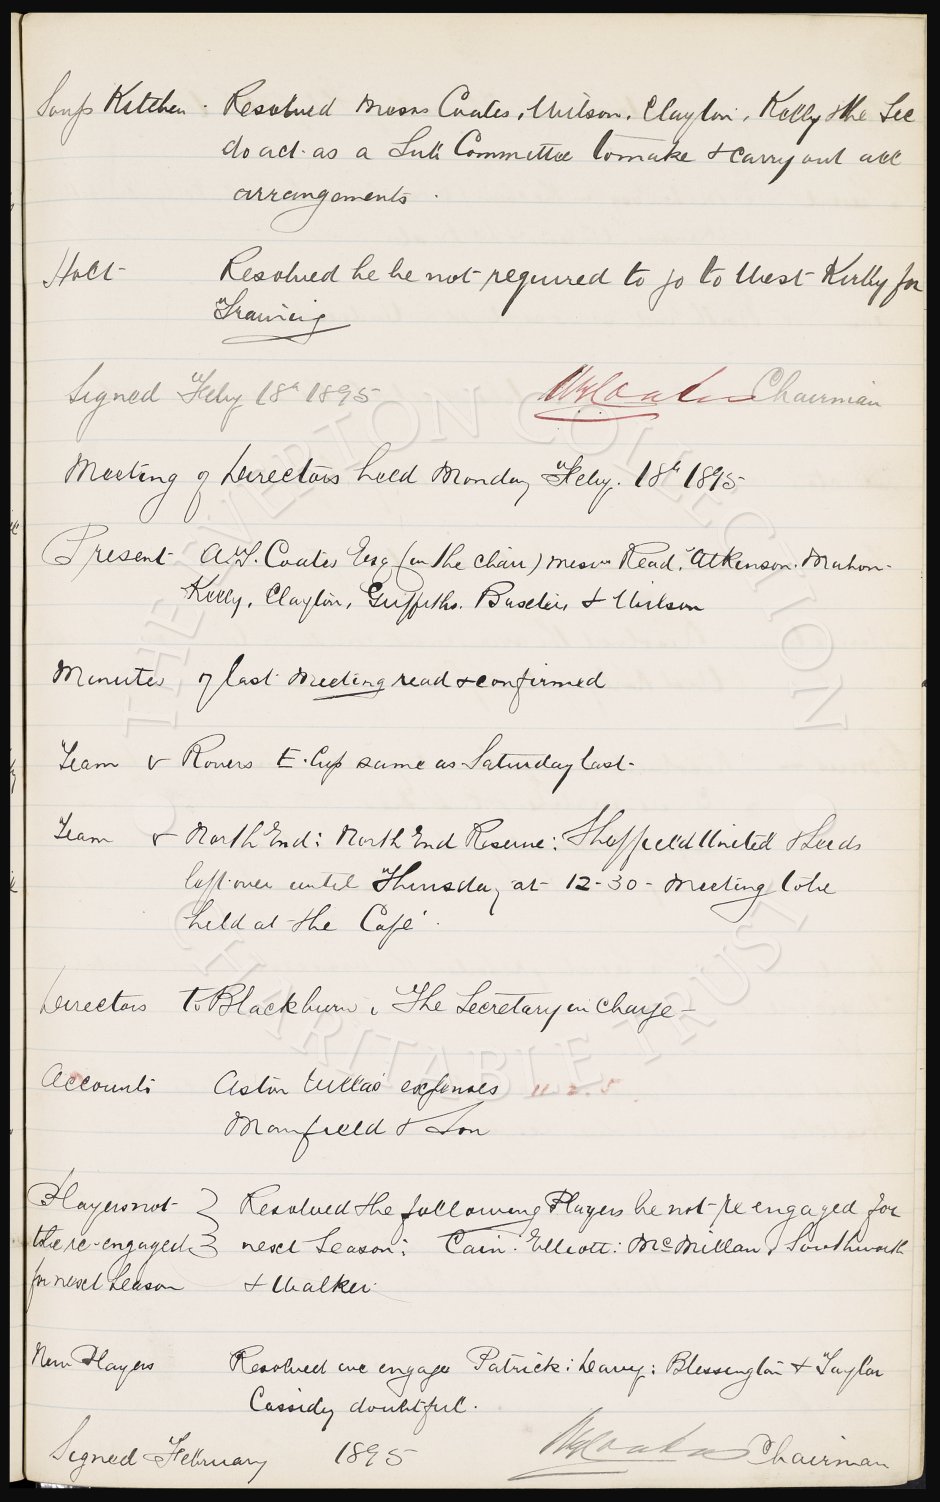 Soup Kitchen. Resolved Messrs Coates, Wilson, Clayton, Kelly & the Sec
do act as a Sub Committee to make & carry out all
arrangements.
Holt Resolved he be not required to go to West Kirby for
Training
Signed Feby 18th 1895 Chairman
Meeting of Directors held Monday Feby. 18th 1895
Present A.T. Coates Esq (in the chair) Messrs Read, Atkinson, Mahon
Kelly, Clayton, Griffiths, Baxter & Wilson
Minutes of last Meeting read & confirmed
Team v Rovers E. Cup same as Saturday last
Team v North End: North End Reserve: Sheffield United & Leeds
left over until Thursday at 12-30 - Meeting to be
held at the Café.
Directors to Blackburn, The Secretary in charge
Accounts Aston Villas expenses 11.2.5
Mansfield & Son
Players not } Resolved the following Players be not re engaged for
to be re-engaged } next Season: Cain: Elliott: McMillan, Southworth
for next Season & Walker.
New Players Resolved we engage Patrick: Davy: Blessington & Taylor
Cassidy doubtful.
Signed February 1895 Chairman
THE EVERTON COLLECTION
CHARITABLE TRUST